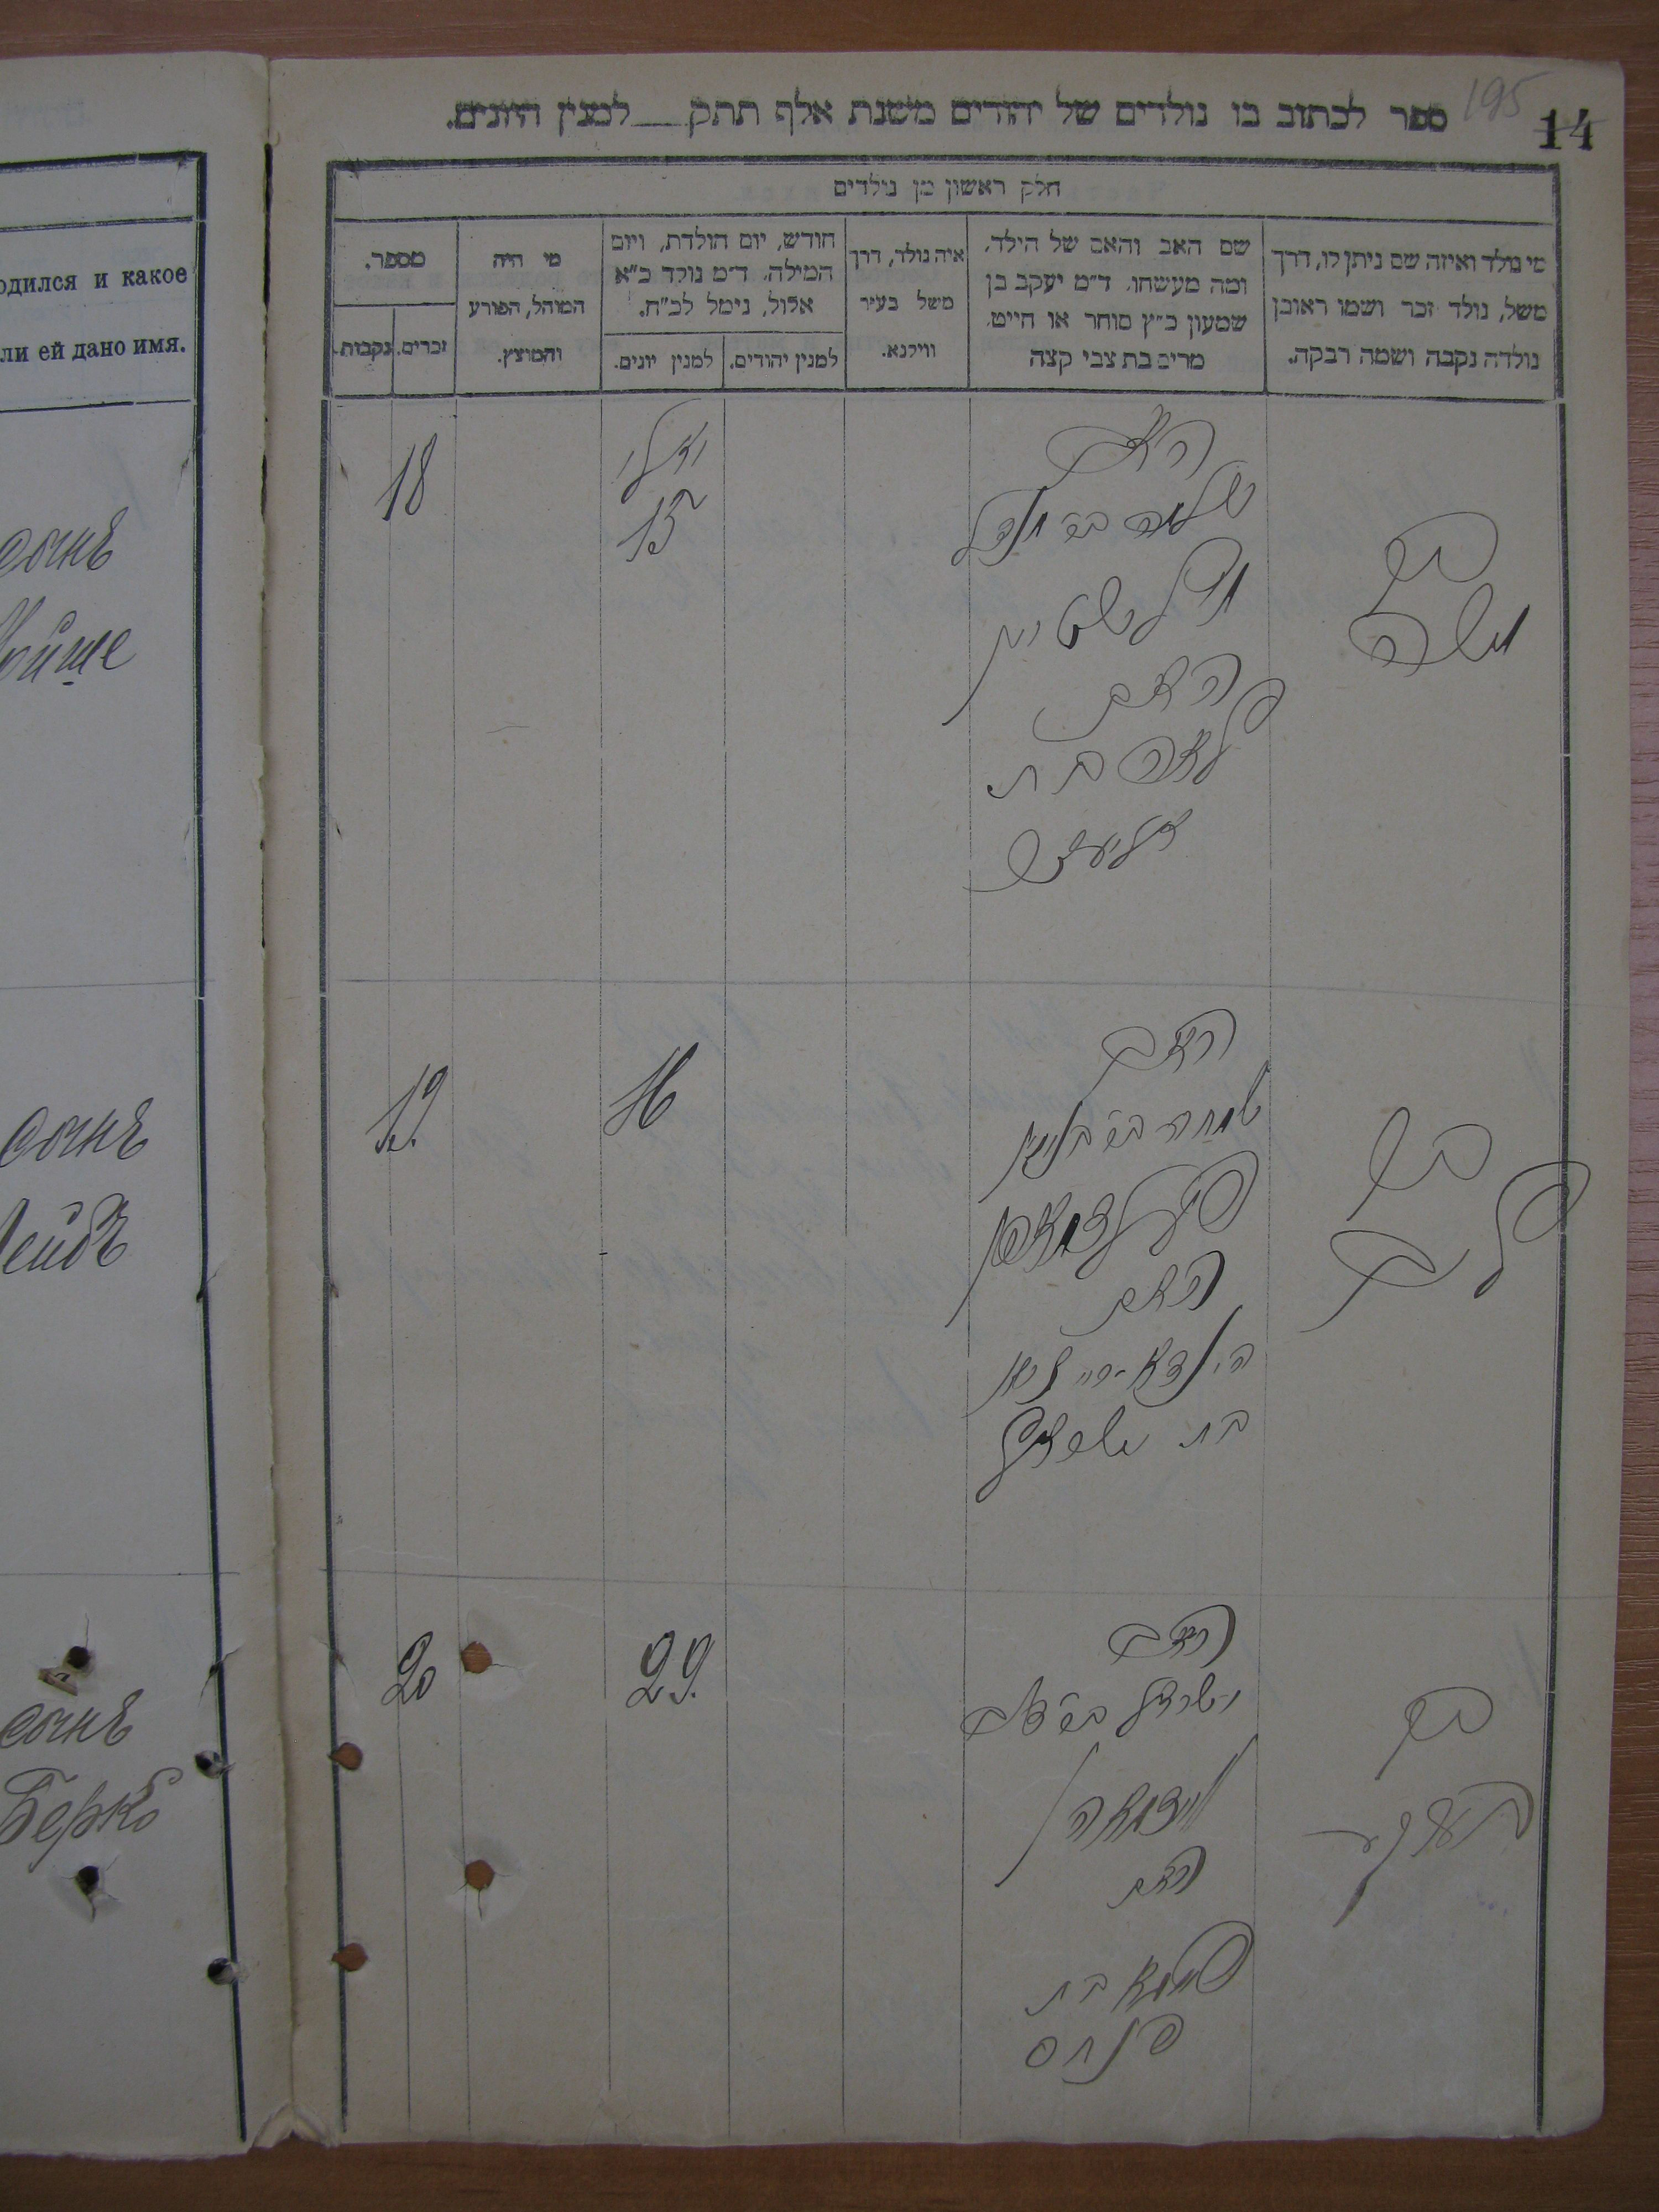 195
14
ספר לכתוב בו נולדים של יהודים משנת אלף תתק___למנין היונים.
חלק ראשון מן נולדים
מי נולד ואיזה שם ניתן לו, דרך
משל, נולד זכר ושמו ראובן
נולדה נקבה ושמה רבקה.
שם האב והאם של הילד,
ומה מעשהו. ד״מ יעקב בן
שמעון כ״ץ סוחר או חייט,
מרים בת צבי קצה
איה נולד, דרך
משל בעיר
ווילנא.
חודש, יום הולדת, ויום
המילה. ד״מ נולד כ״א
אלול, נימל לכ״ח.
למנין יהודים.
למנין יונים.
מי היה
המוהל, הפורע
והמוצץ.
מספר.
זכרים.
נקבות.
одился и какое
ли ей дано имя.
18
יולי
15
האב
שלמה בר
האם
לאה בת
בן
משה
сынъ
Мойше
19
16
האב
שמחה בר
האם
בת
בן
ליב
сынъ
Лейбъ
20
29.
האב
ישראל בר
האם
בת
פנחס
בן
בערקע
сынъ
Берко